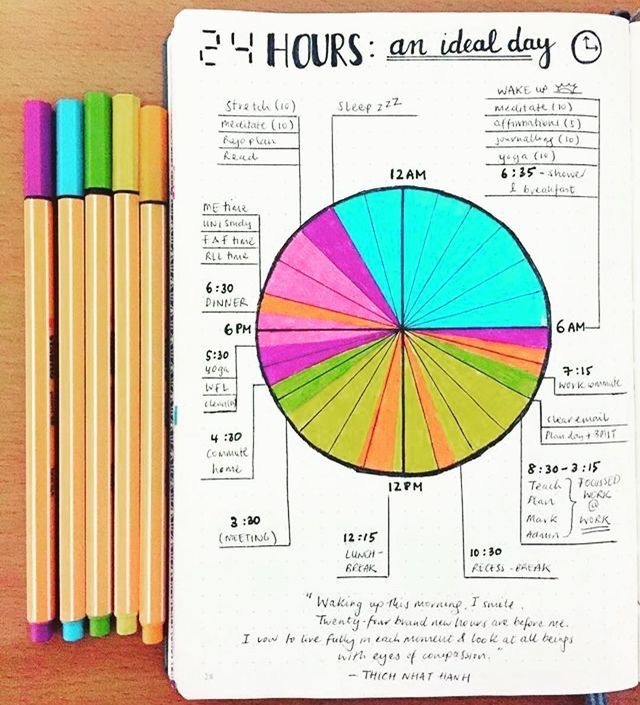 24 HOURS: an ideal day
Stretch (10)
meditate (10)
Bujo plan
Read
Sleep zzz
WAKE UP
meditate (10)
affirmations (5)
journalling (10)
yoga (10)
6:35 - shower
& breakfast
12AM
ME time
UNI Study
F&F time
RLL time
6:30
DINNER
6PM
6AM
5:30
yoga
WFL
cleaning
7:15
work commute
clear email
Plan day + 3MIT
4:30
Commute
home
8:30-3:15
Teach
Plan
Mark
Admin
FOCUSSED
WORK
@
WORK
12PM
3:30
(MEETING)
12:15
LUNCH-
BREAK
10:30
RECESS-BREAK
"Waking up this morning, I smile.
Twenty-four brand new hours are before me.
I vow to live fully in each moment & look at all beings
with eyes of compassion."
- THICH NHAT HANH